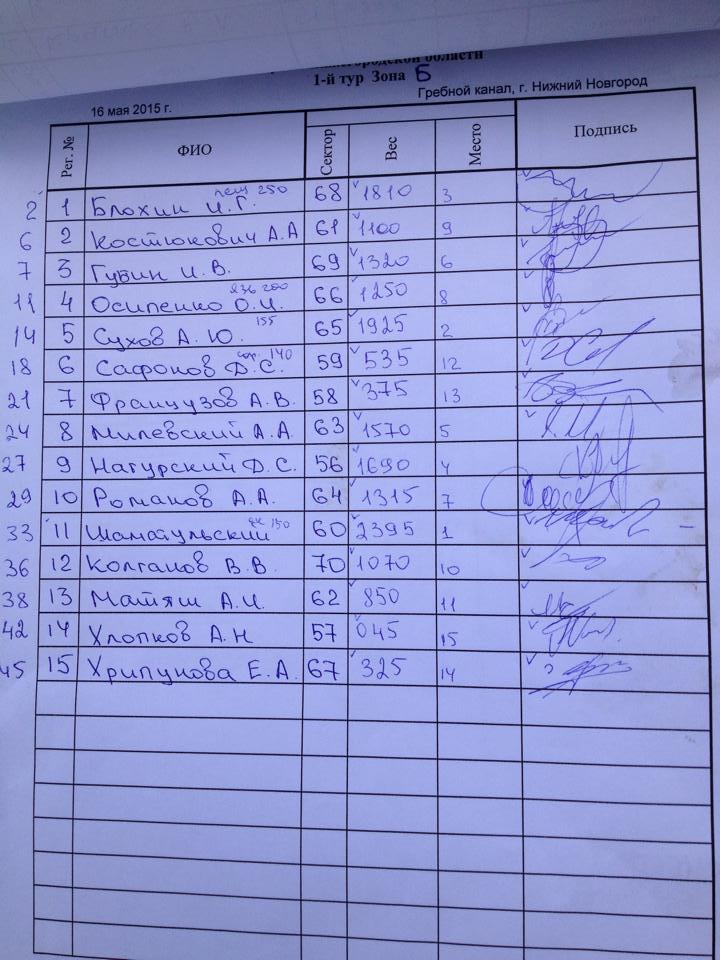 области
1-й тур Зона Б
16 мая 2015 г. Гребной канал, г. Нижний Новгород
Рег. № ФИО Сектор Вес Место Подпись
2 1 Блохин И.Г. лещ 250 68 1810 3
6 2 Костюкович А.А 61 1100 9
7 3 Губин И.В. 69 1320 6
11 4 Осипенко О.И. 66 1250 8
14 5 Сухов А.Ю. 155 65 1925 2
18 6 Сафонов Д.С. 140 59 535 12
21 7 Французов А.В. 58 375 13
24 8 Милевский А.А 63 1570 5
27 9 Нагурский Д.С. 56 1690 4
29 10 Романов А.А. 64 1315 7
33 11 Шаматульский 150 60 2395 1
36 12 Колганов В.В. 70 1070 10
38 13 Матяш А.И. 62 850 11
42 14 Хлопков А.Н 57 045 15
45 15 Хрипунова Е.А. 67 325 14